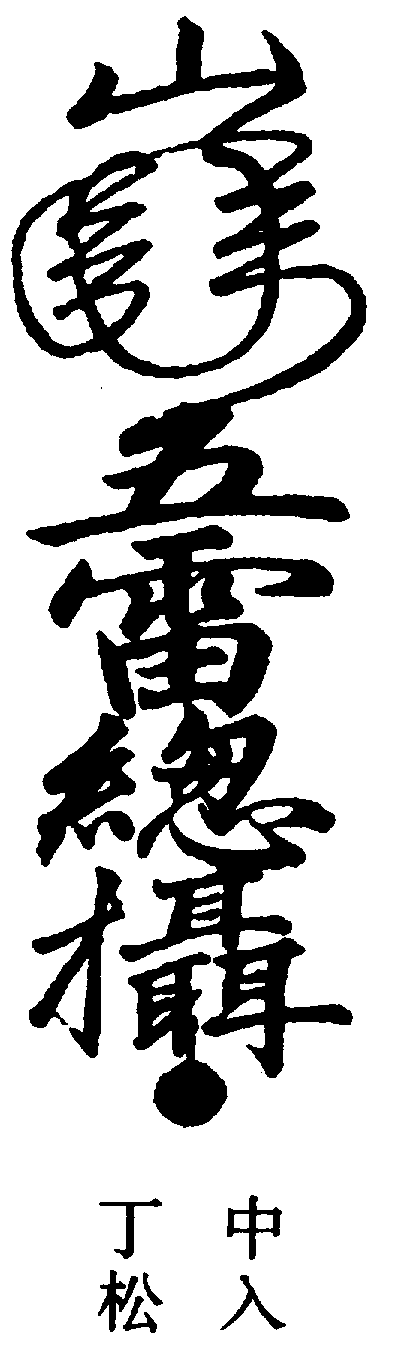 五雷總攝
中入
丁松